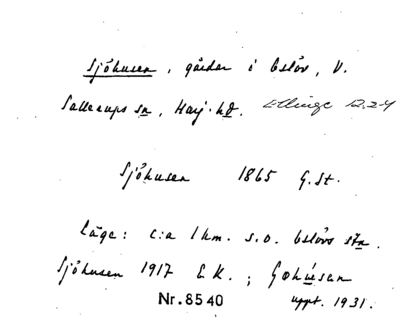 Sjöhusen, gårdar i Eslöv, V.
Sallerups sn, Harj. hd. Ellinge 12.24
Sjöhusen 1865 G.St.
Läge: c:a 1 km. s.o. Eslövs stn.
Sjöhusen 1917 E.K.;
Nr. 8540 uppt. 1931.